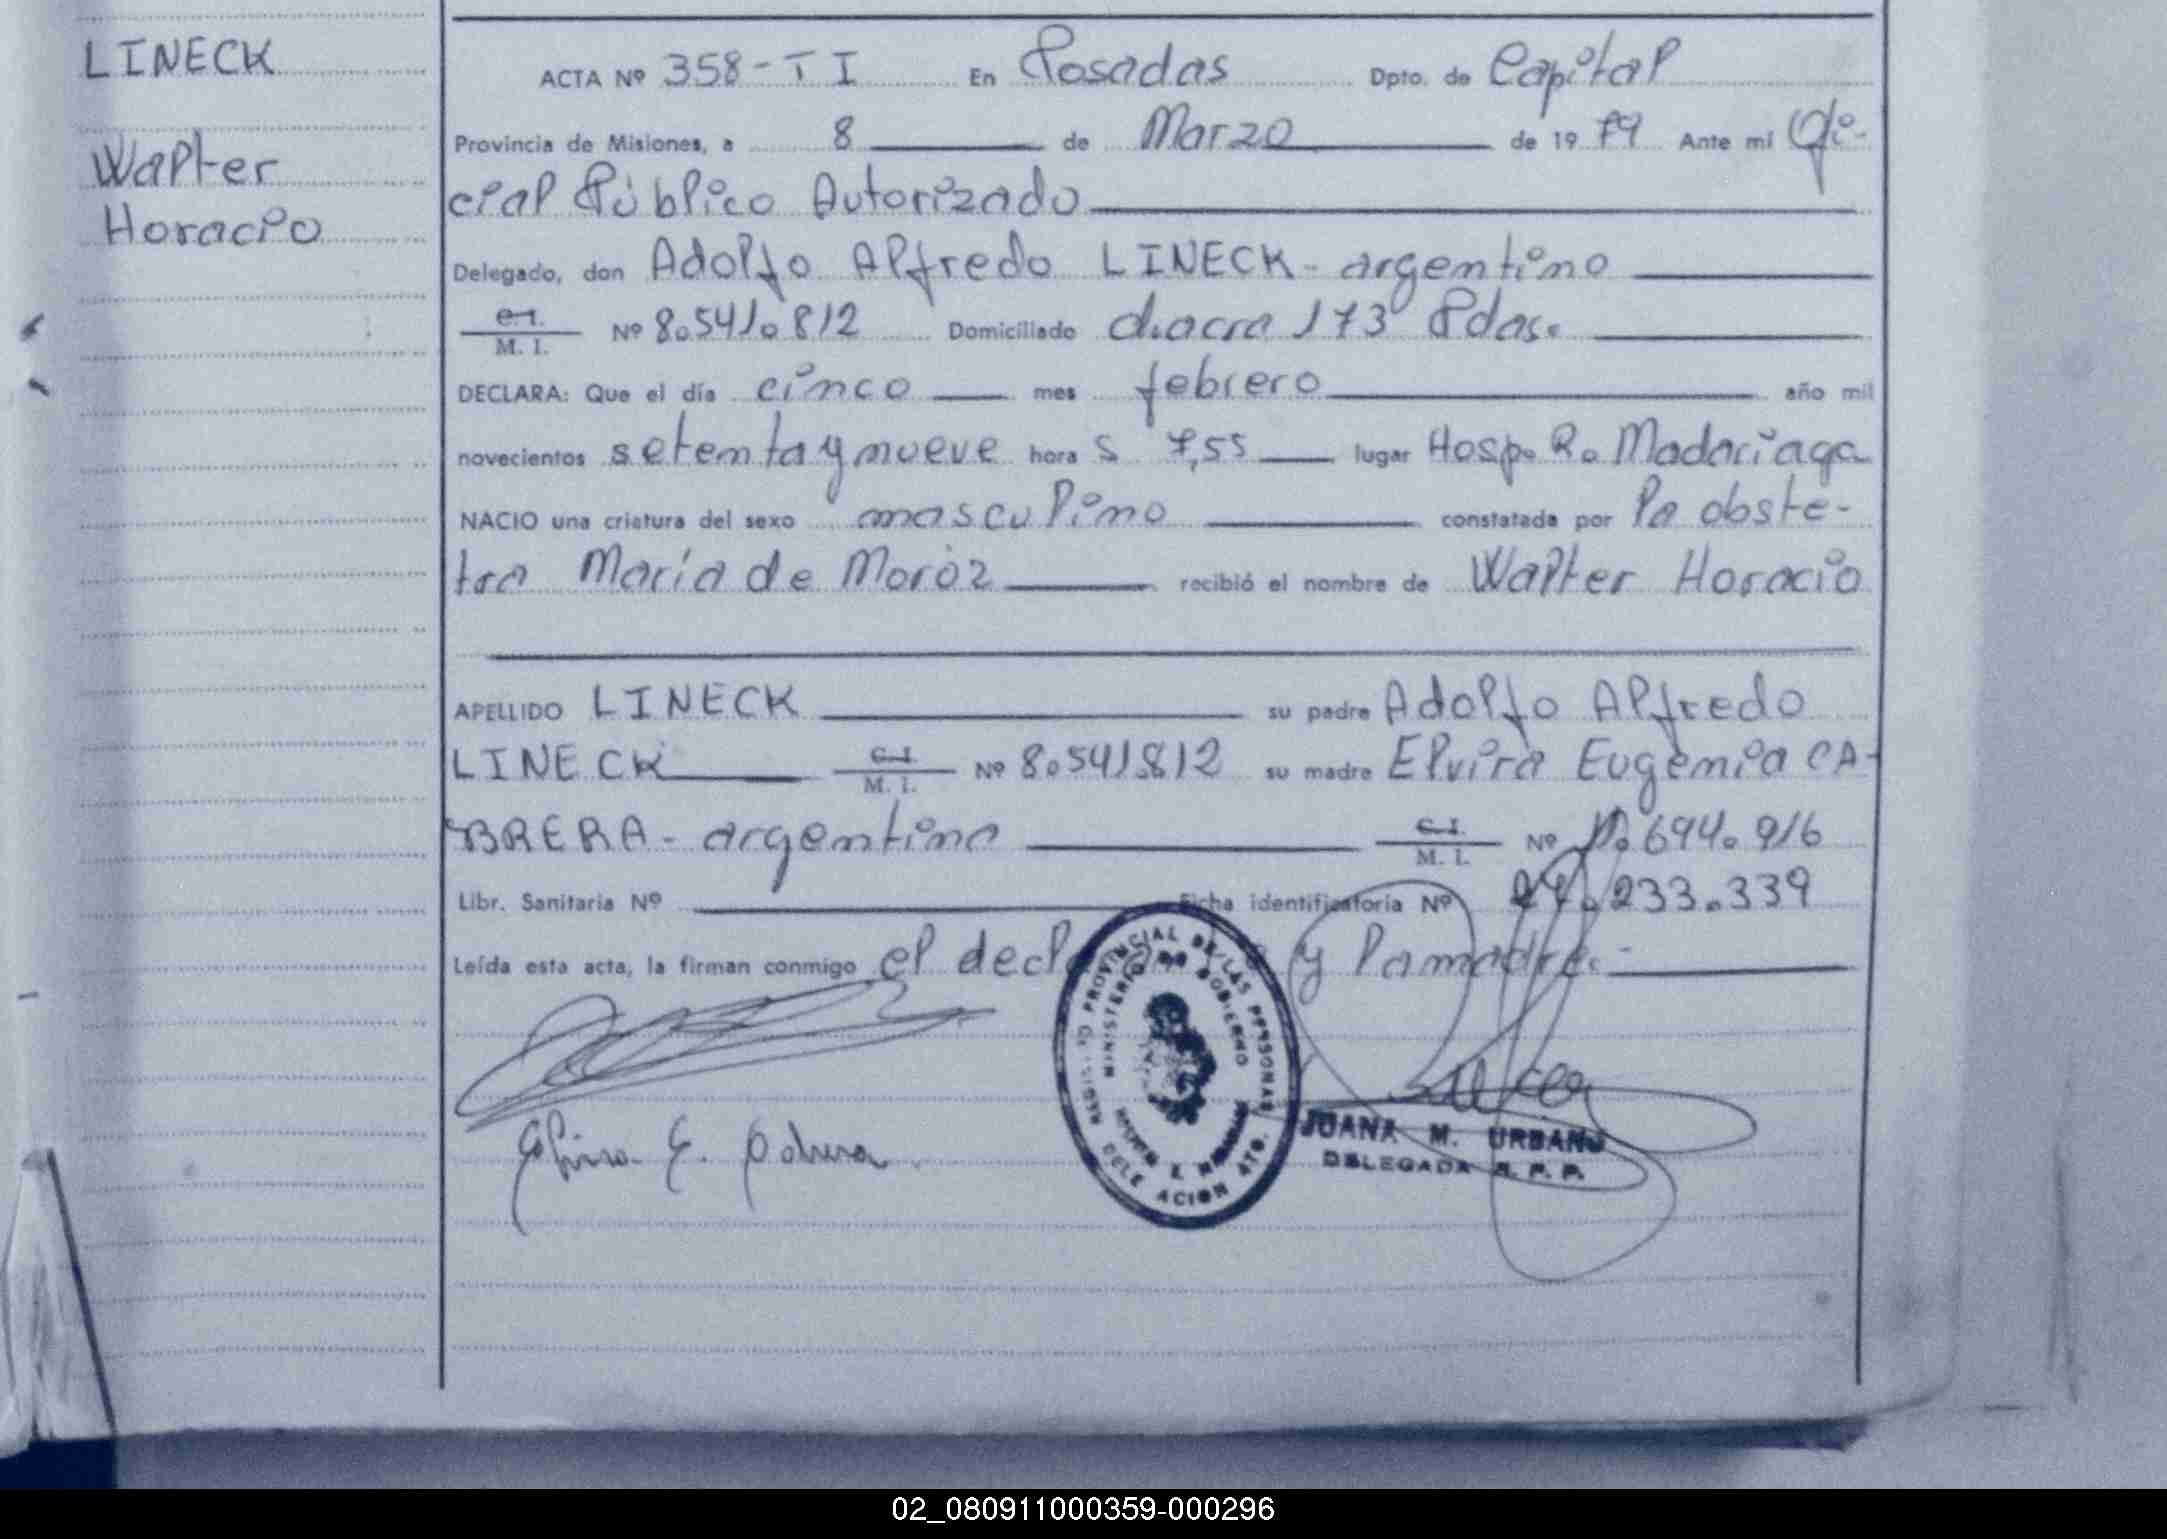 LINECK
Walter
Horacio
ACTA Nº 358-T I En Posadas Dpto. de Capital
Provincia de Misiones, a 8 de Marzo de 1979 Ante mi Ofi-
cial Público Autorizado
Delegado, don Adolfo Alfredo LINECK - argentino
C.I. M. I. Nº 8.541.812 Domiciliado chacra 173 Pdas.
DECLARA: Que el día cinco mes febrero año mil
novecientos setenta y nueve hora s 7,55 lugar Hosp. R. Madariaga
NACIO una criatura del sexo masculino constatada por la obste-
tra María de Moroz recibió el nombre de Walter Horacio
APELLIDO LINECK su padre Adolfo Alfredo
LINECK C.I. M. I. Nº 8.541.812 su madre Elvira Eugenia CA-
BRERA - argentina C.I. M. I. Nº 694.916
Libr. Sanitaria Nº Ficha identificatoria Nº 27.233.339
Leída esta acta, la firman conmigo el y la madre.-
REGISTRO PROVINCIAL DE LAS PERSONAS
MINISTERIO DE GOBIERNO
Elvira E.
JUANA M. URBANO
DELEGADA R. P. P.
02_080911000359-000296